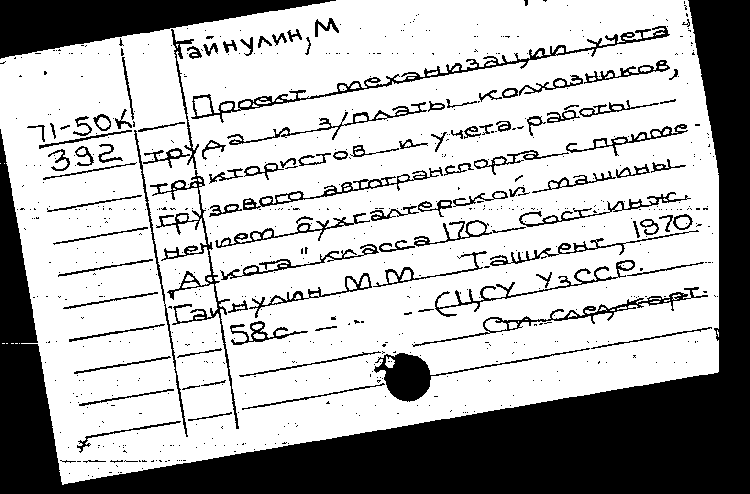 Гайнулин, М
Проект механизации учета
71-50К
392
труда и з/платы колхозников,
трактористов и учета работы
грузового автотранспорта с приме-
нением бухгалтерской машины
„Аскота" класса 170. Сост. инж.
Гайнулин М.М. Ташкент, 1970.
58с. (ЦСУ УзССР.
См. след. карт.